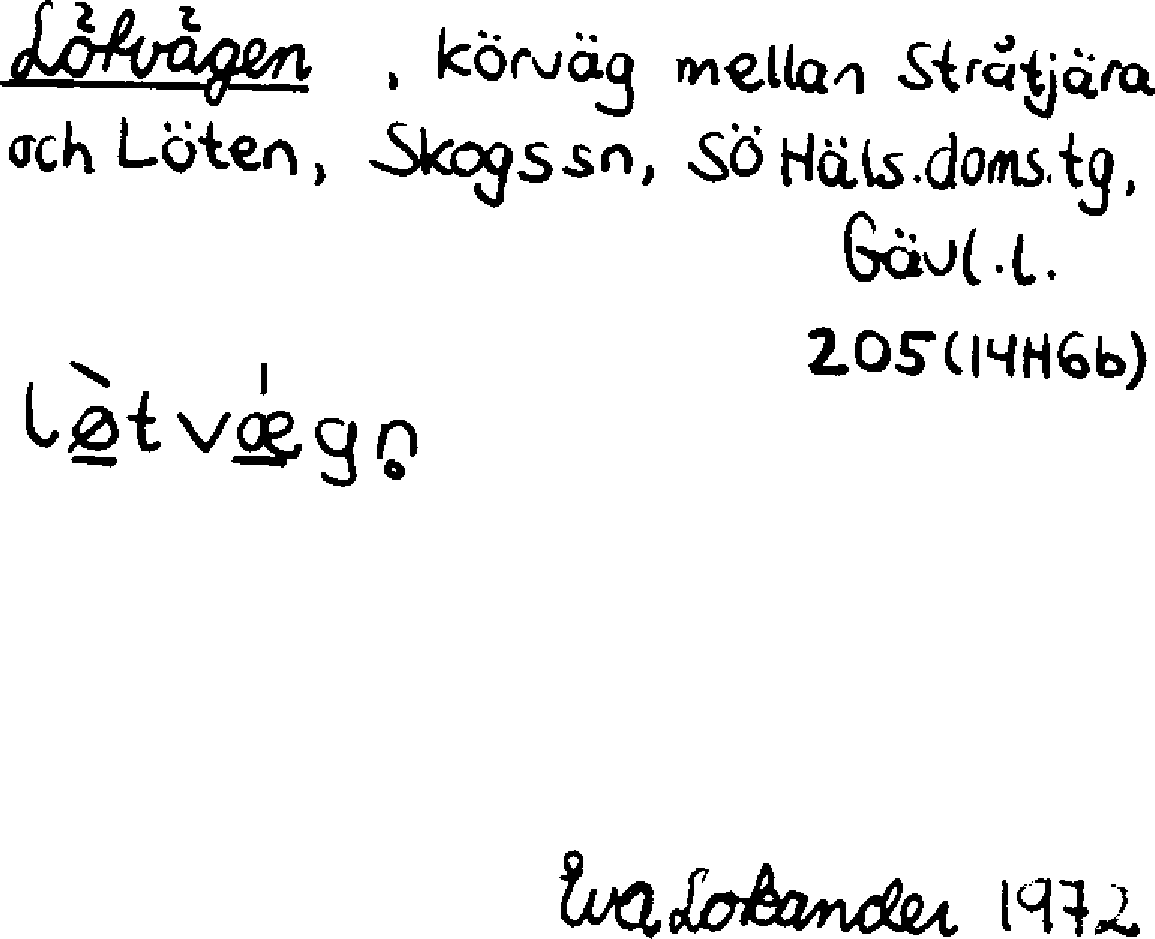 Lötvägen, körväg mellan Stråtjära
och Löten, Skogs sn, SÖ Häls. doms. tg,
Gävl. l.
205 (14H6b)
lø̀tvæ̍gn̥
Eva Lokander 1972